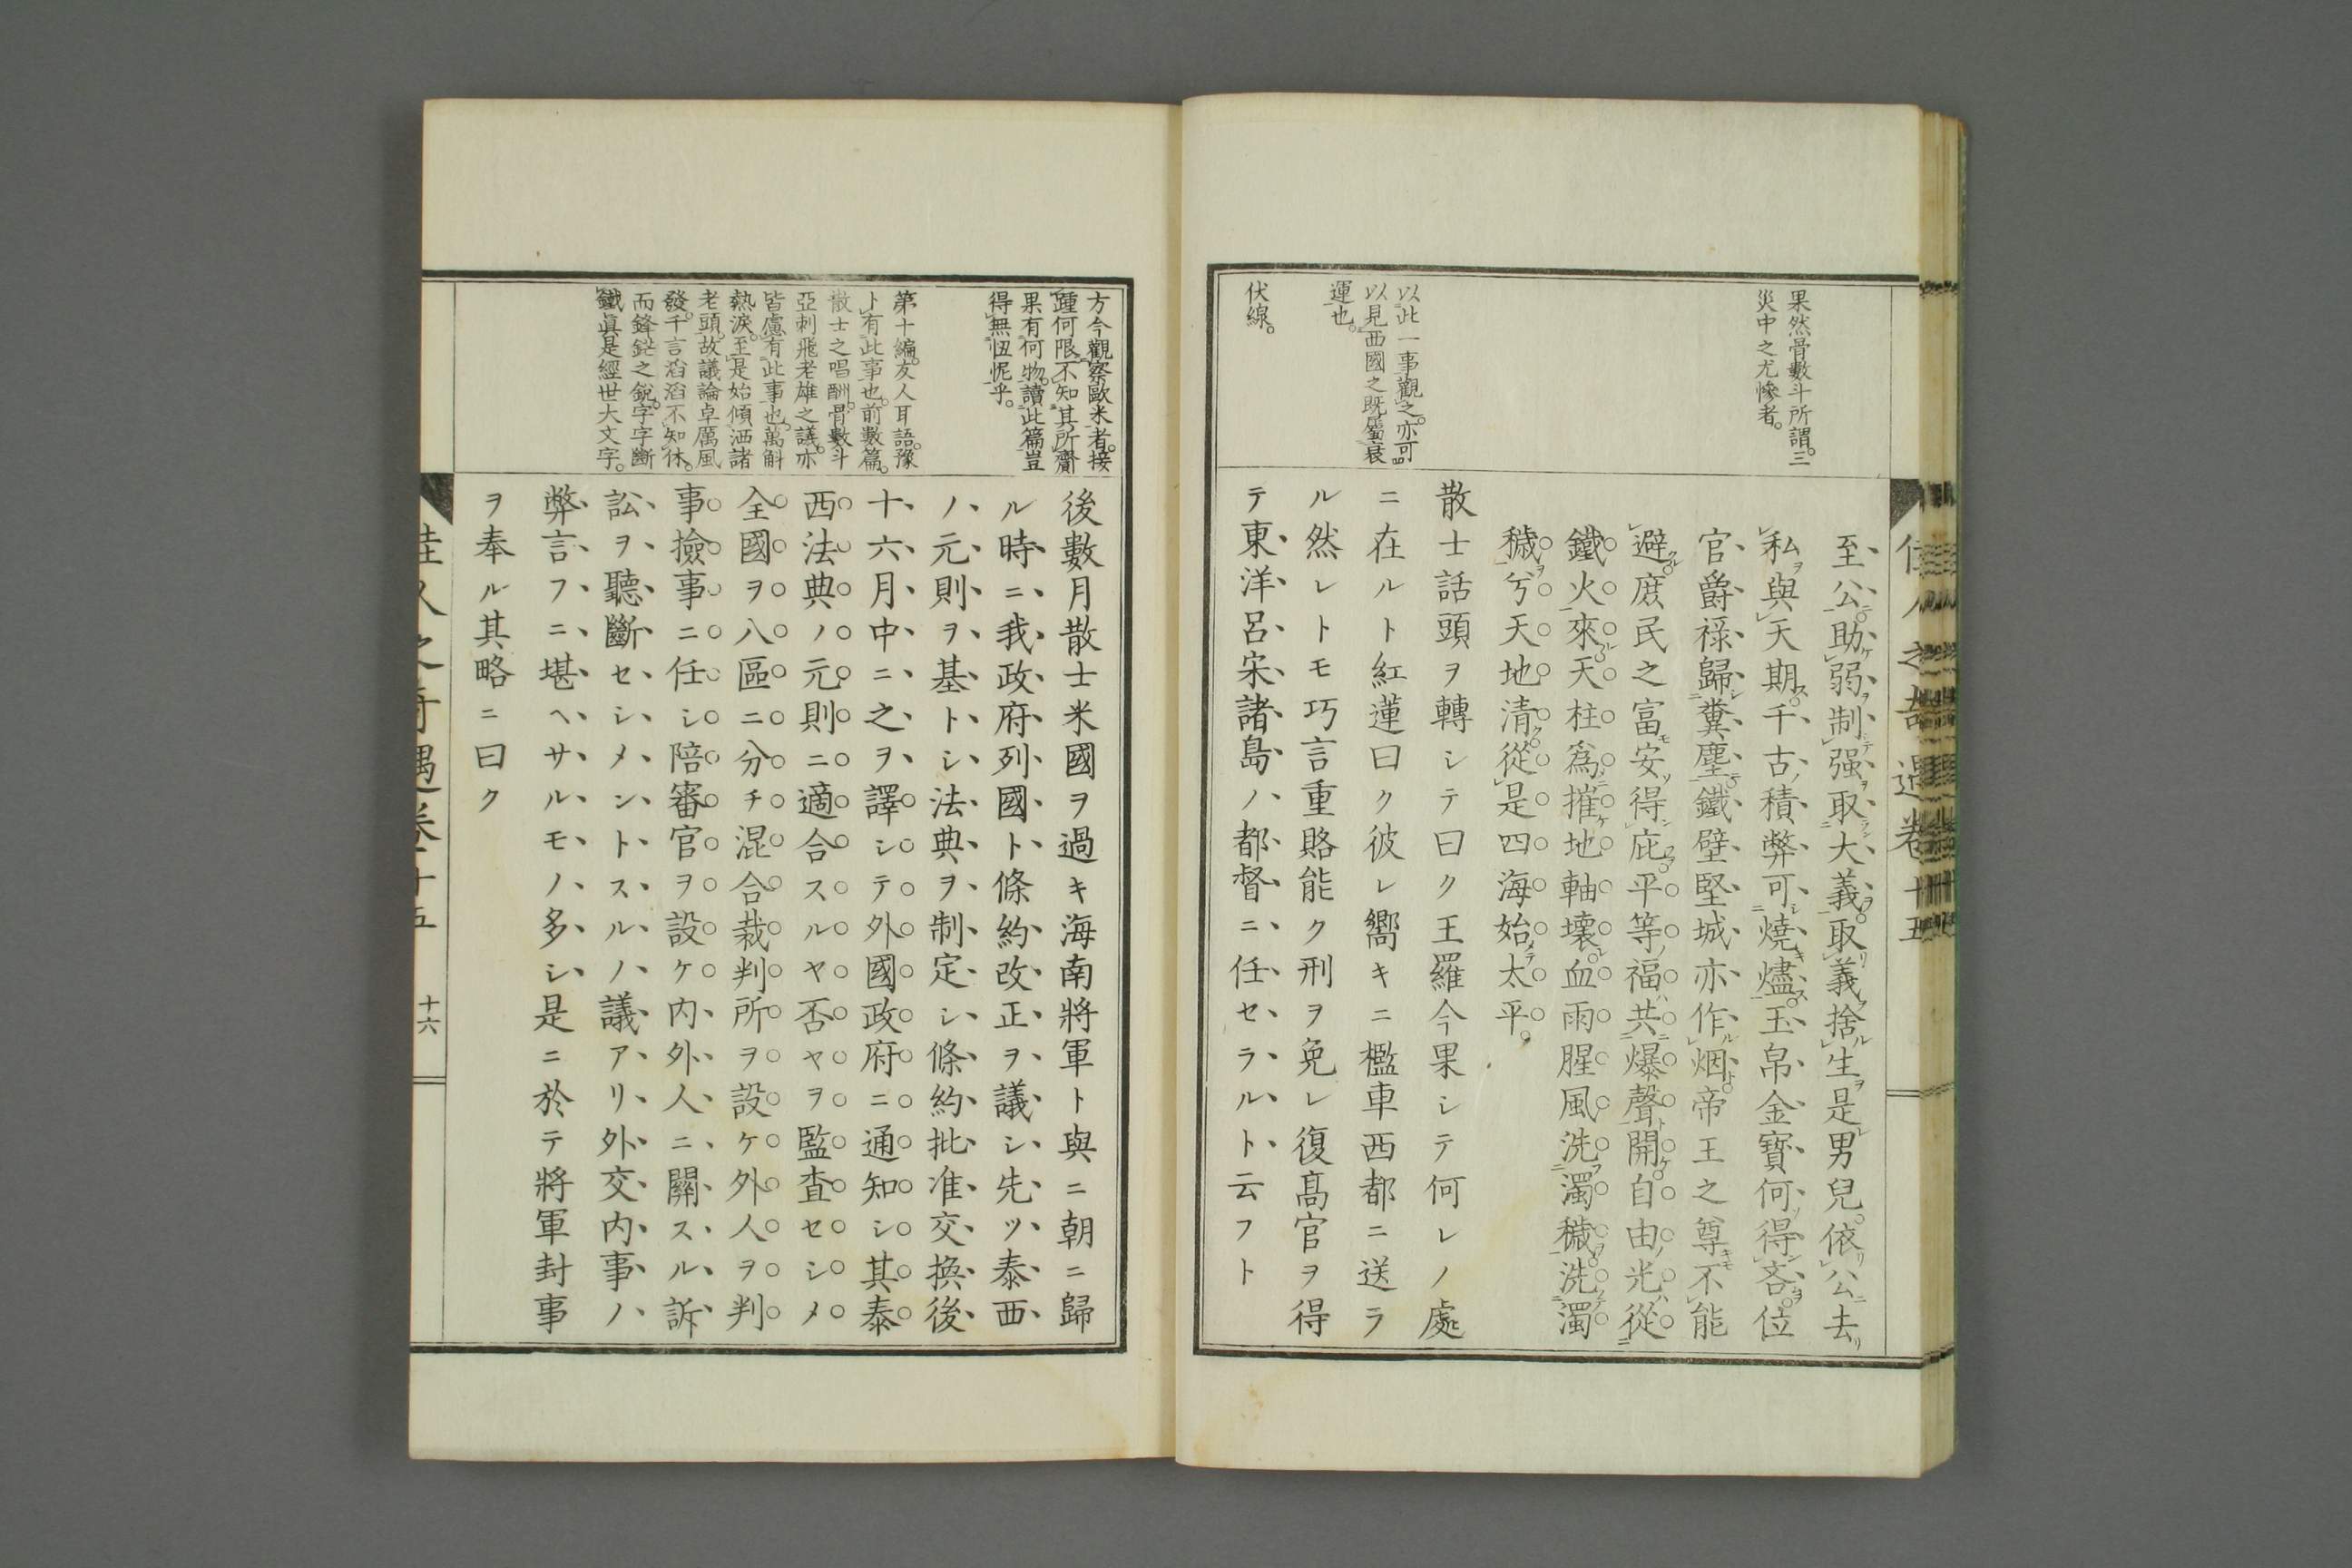 佳人之奇遇卷十五
果然骨數斗所謂。三
災中之尤慘者。
以此一事觀之。亦可
以見西國之既屬衰
運也。
伏線。
至公。助弱制强取大義。取義捨生是男兒。依公去
私與天期。千古積弊可燒燼。玉帛金寶何得吝。位
官爵祿歸糞塵。鐵壁堅城亦作烟。帝王之尊不能
避。庶民之富安得庇。平等福共爆聲開。自由光從
鐵火來。天柱爲摧地軸壞。血雨腥風洗濁穢。洗濁
穢兮天地清。從是四海始太平。
散士話頭ヲ轉シテ曰ク王羅今果シテ何レノ處
ニ在ルト紅蓮曰ク彼レ嚮キニ檻車西都ニ送ラ
ル然レトモ巧言重賂能ク刑ヲ免レ復髙官ヲ得
テ東洋呂宋諸島ノ都督ニ任セラルト云フト
方今觀察歐米者。接
踵何限。不知其所齎
果有何物。讀此篇豈
得無忸怩乎。
第十編。友人耳語。豫
ト有此事也。前數篇。
散士之唱酬。骨數斗
亞刺飛老雄之議。亦
皆慮有此事也。萬斛
熱淚。至是始傾洒諸
老頭。故議論卓厲風
發。千言滔滔不知休。
而鋒鋩之銳。字字斷
鐵。眞是經世大文字。
後數月散士米國ヲ過キ海南將軍ト與ニ朝ニ歸
ル時ニ我政府列國ト條約改正ヲ議シ先ツ泰西
ノ元則ヲ基トシ法典ヲ制定シ條約批准交換後
十六月中ニ之ヲ譯シテ外國政府ニ通知シ其泰
西法典ノ元則ニ適合スルヤ否ヤヲ監査セシメ
全國ヲ八區ニ分チ混合裁判所ヲ設ケ外人ヲ判
事撿事ニ任シ陪審官ヲ設ケ內外人ニ關スル訴
訟ヲ聽斷セシメントスルノ議アリ外交內事ノ
弊言フニ堪ヘサルモノ多シ是ニ於テ將軍封事
ヲ奉ル其略ニ曰ク
佳人之奇遇卷十五
十六